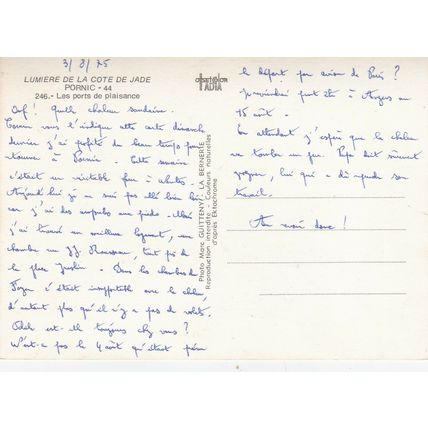 3/8/75
LUMIERE DE LA COTE DE JADE
PORNIC - 44
246.- Les ports de plaisance
Ouf! Quelle chaleur soudaine.
Comme vous l'indique cette carte dimanche
dernier j'ai profité du beau temps pour
à Pornic. Cette semaine
c'était un véritable four à
Aujourd'hui je
j'ai des ampoules aux pieds.
j'ai trouvé un meilleur logement, une
chambre rue JJ Rousseau, tout près de
la place. Dans les chambres du
foyer c'était insupportable avec la chaleur,
d'autant plus qu'il n'y a pas de volets.
Odile est-elle toujours chez vous?
N'est-ce pas le 4 août qu'était prévu
le départ par avion de Paris?
Je reviendrai peut-être à Angers au
15 août.
En attendant j'espère que la chaleur
va tomber un peu. Papa doit sûrement
, lui qui a dû reprendre son
travail.
Au revoir donc!
Photo Marc GUITTENY - LA BERNERIE
Reproduction interdite - Couleurs naturelles
d'après Ektachrome